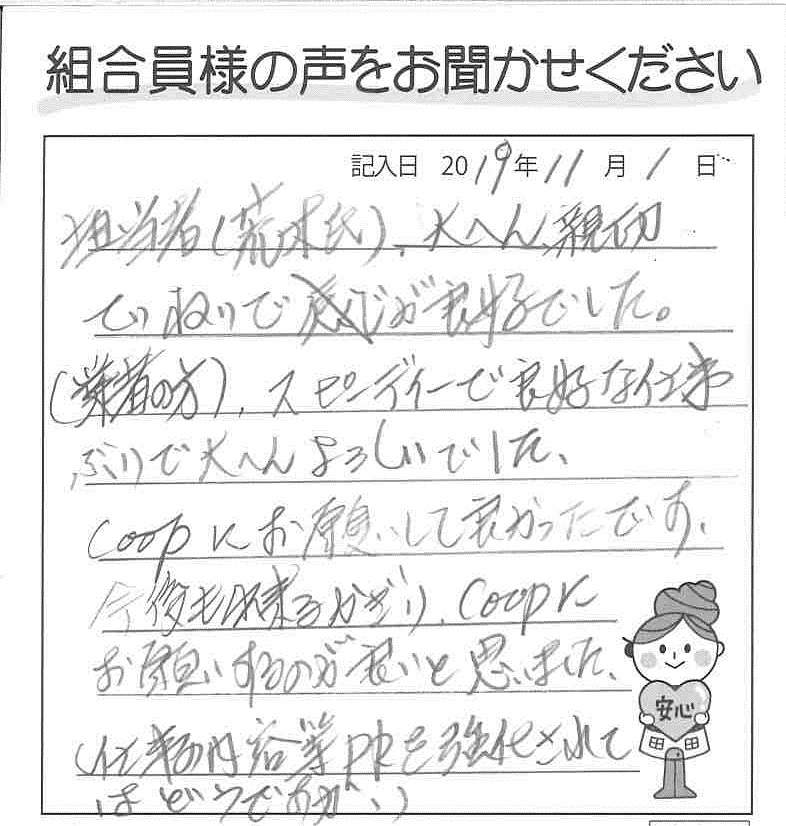 組合員様の声をお聞かせください
記入日 2019年11月1日
担当者(荒木氏)、大へん親切
でいねいで感じが良好でした。
(業者の方)、スピーディーで良好な仕事
ぶりで大へんよろしいでした、
coopにお願いして良かったです、
今後も出来るかぎり、coopに
お願いするのが良いと思いました、
(仕事の内容等PRを強化されて
はどうですか、)
安心